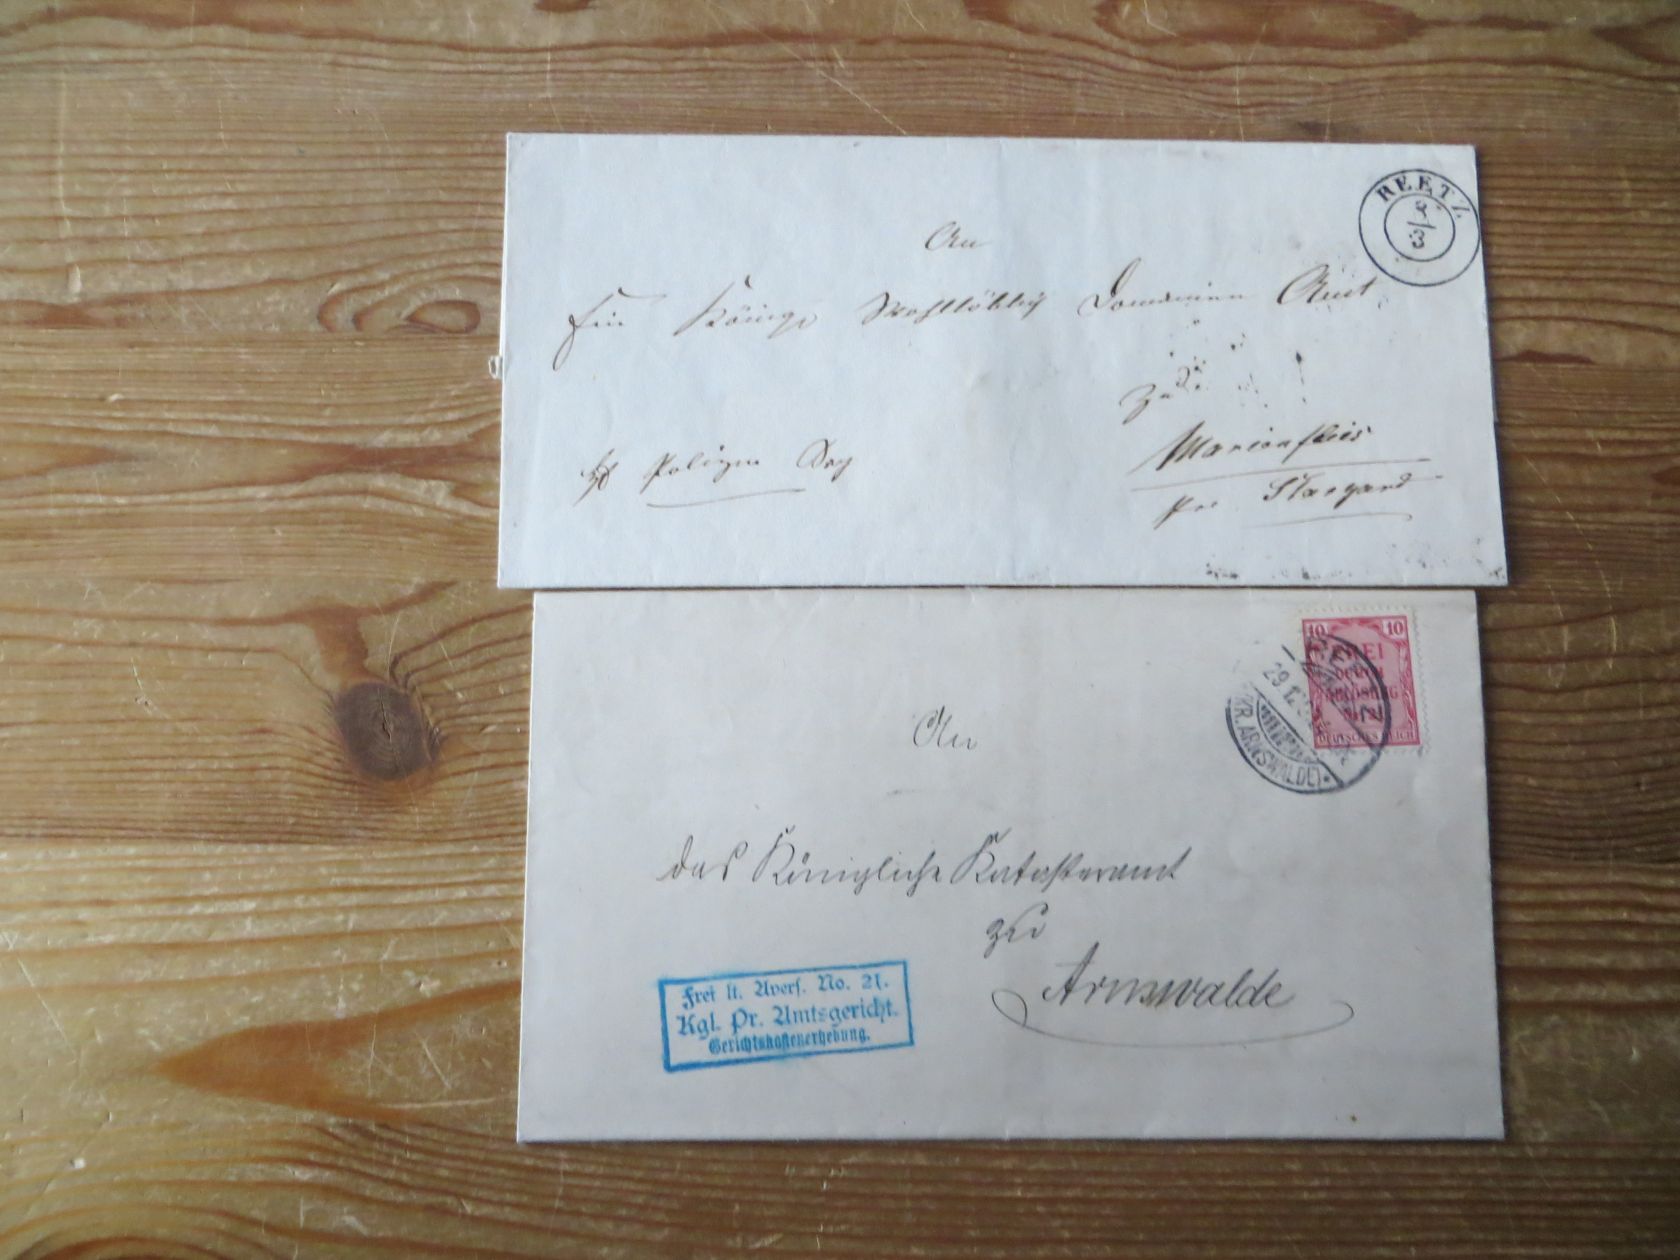 REETZ
3
An
Ein Königl Wohllöblich Domainen Amt
zu
Marienflies
per Stargard
10 10
FREI
DURCH
ABLÖSUNG
Nr. 21
DEUTSCHES REICH
29.
(KR. ARNSWALDE) *
An
das Königliche Katasteramt
zu
Arnswalde
Frei lt. Avers. No. 21.
Kgl. Pr. Amtsgericht.
Gerichtskostenerhebung.